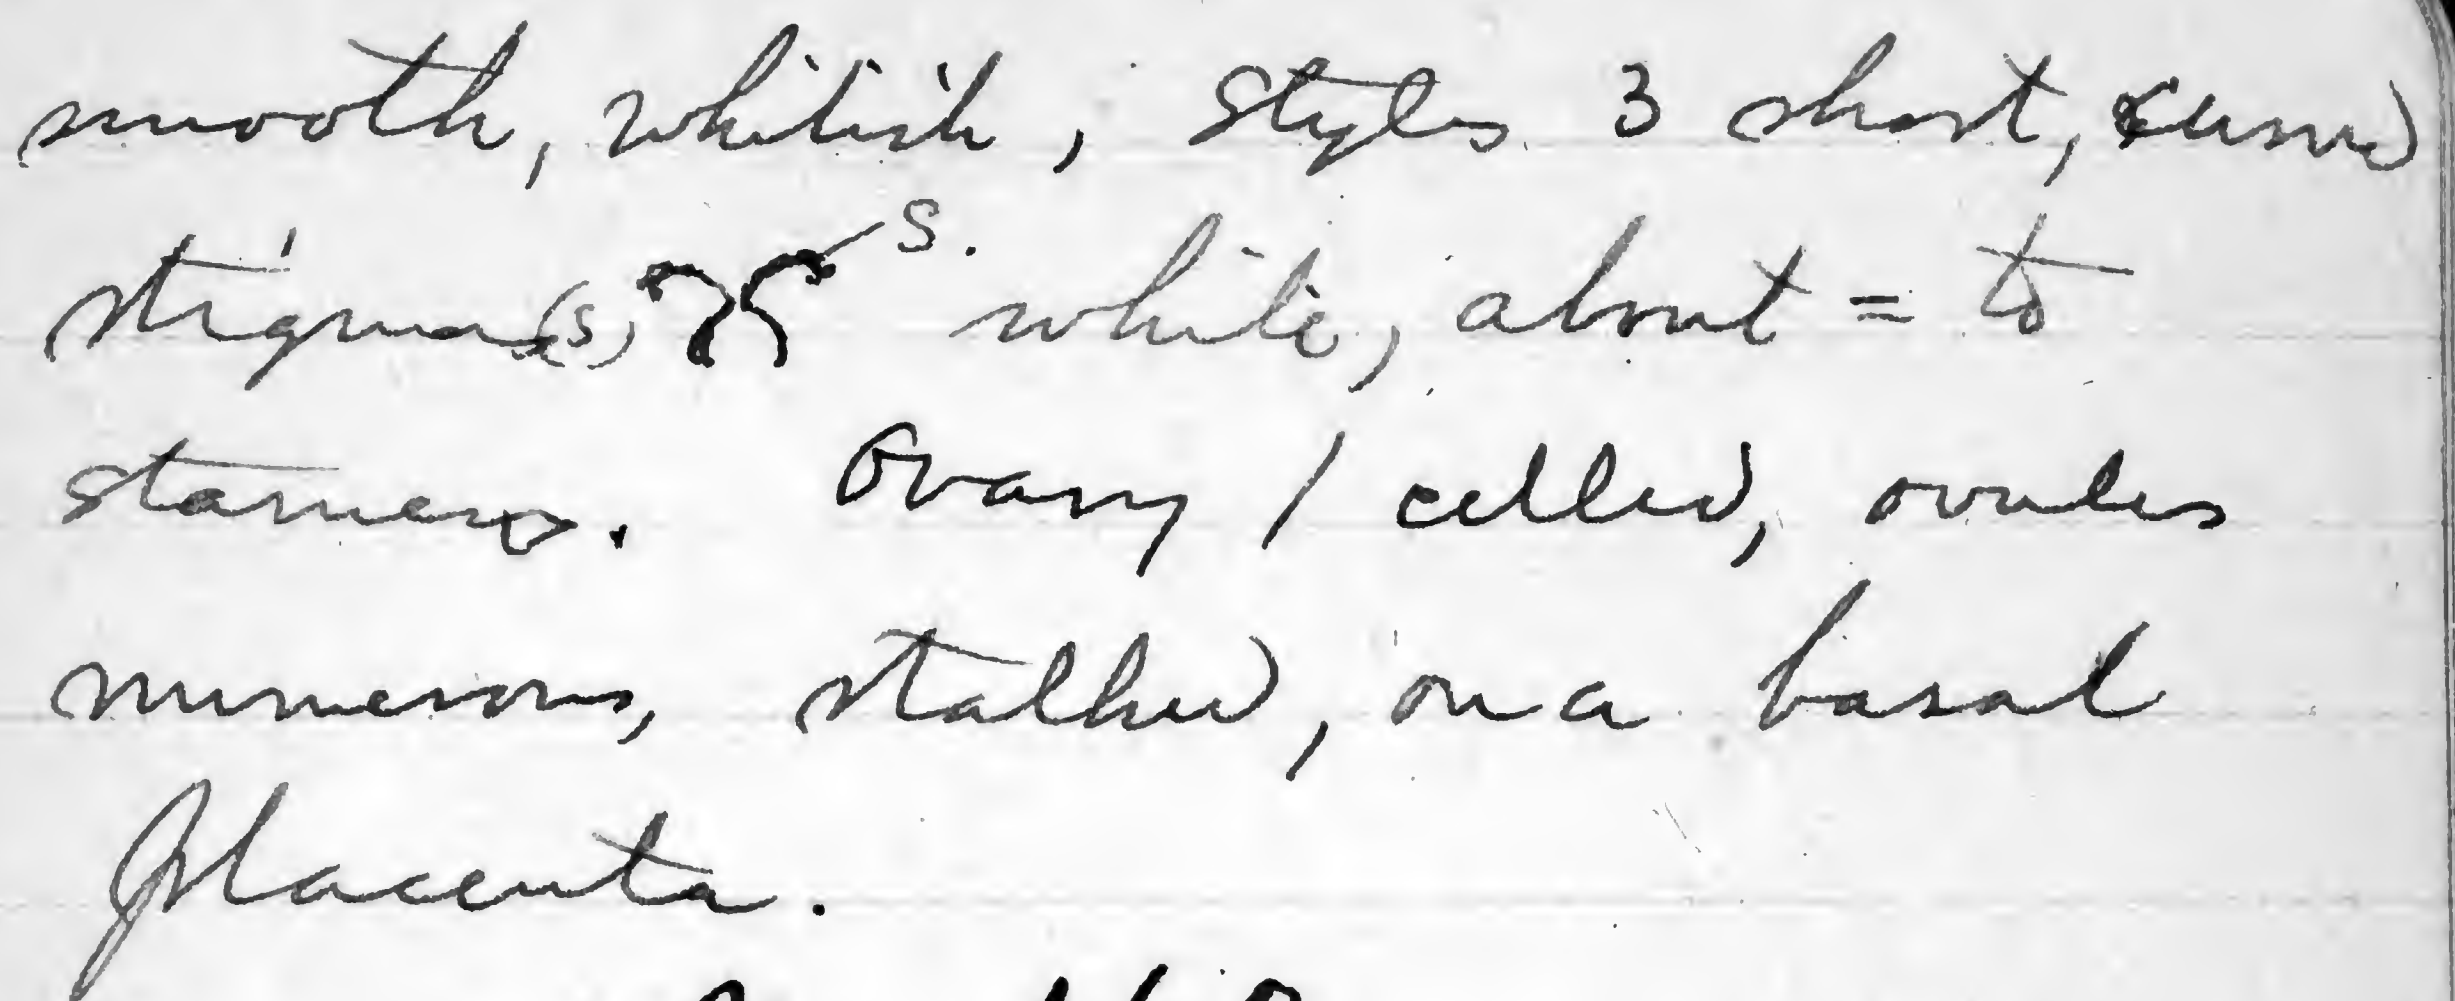 smooth, whitish, styles 3 short, curved
stigmas(s) s. white, about = to
stamens. Ovary 1 celled, ovules
numerous, stalked, on a basal
placenta.